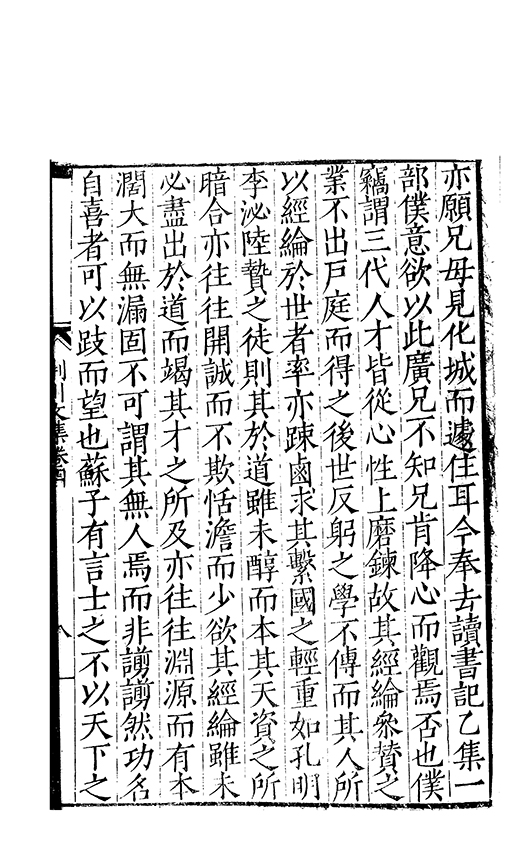 亦願兄毋見化城而遽住耳今奉去讀書記乙集一
部僕意欲以此廣兄不知兄肯降心而觀焉否也僕
竊謂三代人才皆從心性上磨鍊故其經綸參贊之
業不出戶庭而得之後世反躬之學不傳而其人所
以經綸於世者率亦踈鹵求其繫國之輕重如孔明
李泌陸贄之徒則其於道雖未醇而本其天資之所
暗合亦往往開誠而不欺恬澹而少欲其經綸雖未
必盡出於道而竭其才之所及亦往往淵源而有本
濶大而無漏固不可謂其無人焉而非謭謭然功名
自喜者可以跂而望也蘇子有言士之不以天下之
荆川文集卷四
八